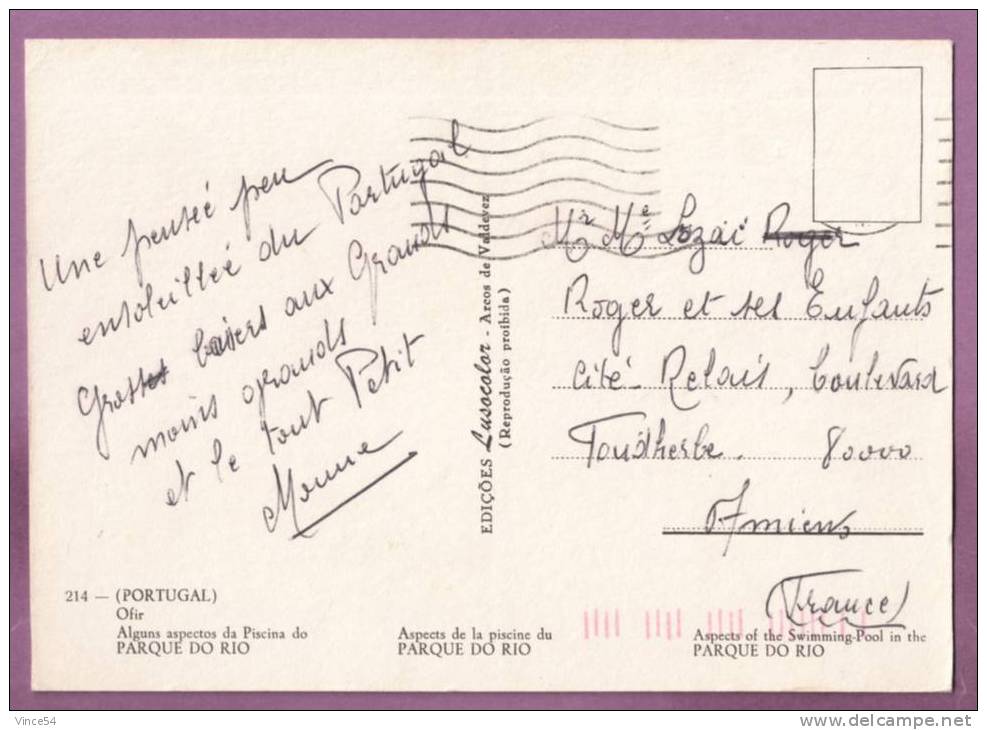 Une pensée peu
ensoleillée du Portugal
Grosses baisers aux Grands
moins grands
et le tout Petit
Monne
EDIÇÕES Lusocolor - Arcos de Valdevez
(Reprodução proibida)
Mr Me Lozai Roger
Roger et ses Enfants
Cité Relais, boulevard
80000
Amiens
(France)
214 — (PORTUGAL)
Ofir
Alguns aspectos da Piscina do
PARQUE DO RIO
Aspects de la piscine du
PARQUE DO RIO
Aspects of the Swimming-Pool in the
PARQUE DO RIO
Vince54
www.delcampe.net